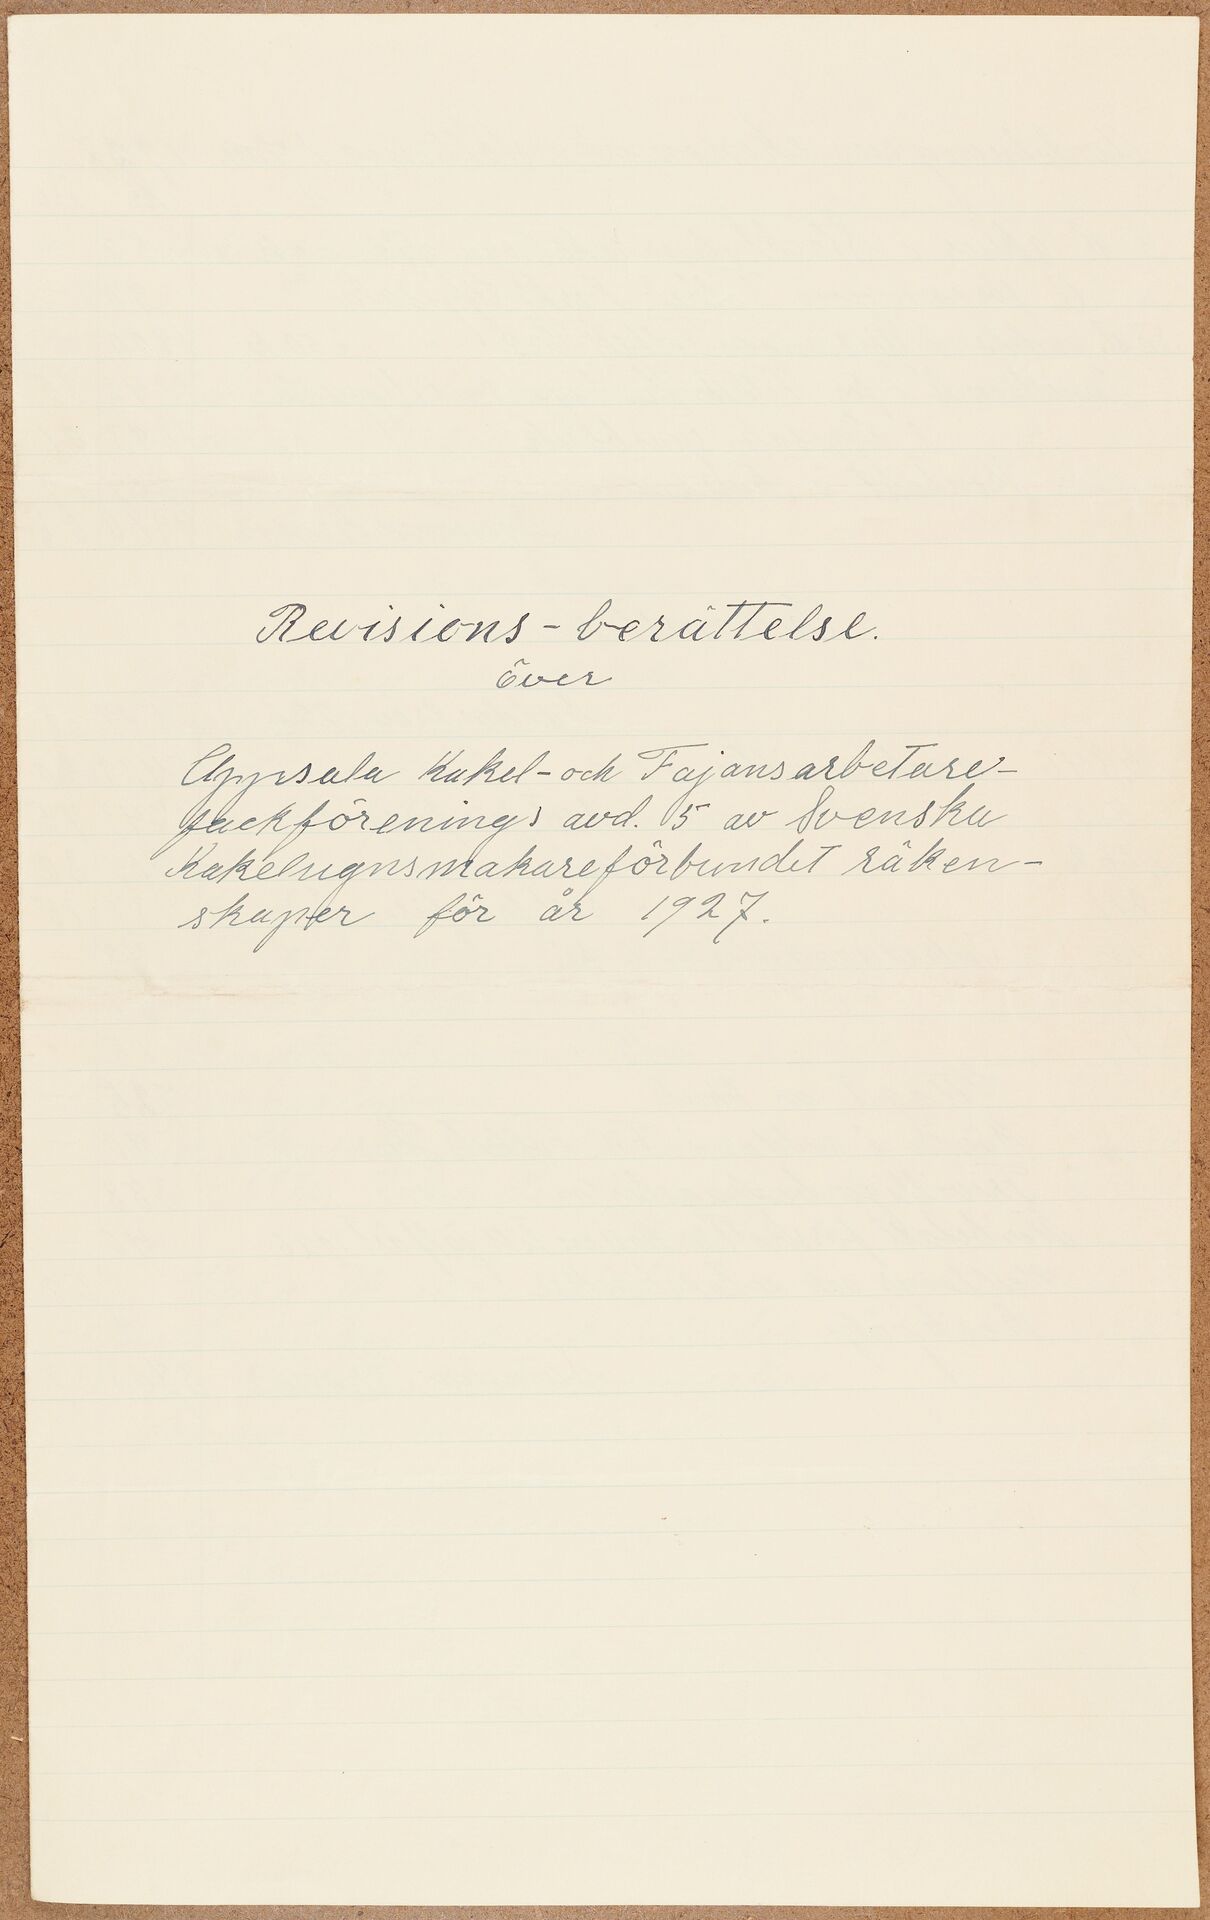 Revisions-berättelse.
över
Uppsala Kakel-och Fajansarbetare-
fackförenings avd. 5 av Svenska
Kakelugnsmakareförbundet räken-
skaper för år 1927.